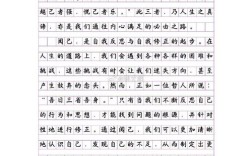 越己者强，悦己者乐。”此三者，乃人生之真
谛，亦是我们通往内心满足的必由之路。
阅己，是自我反思与自我修正的起步。在
人生的道路上，我们会遇到各种各样的困难和
挑战，这些挑战有时会让我们迷失方向，甚至
产生放弃的念头。然而，正如一位哲人所说：
“吾日三省吾身。”只有当我们不断反思自己
的行为和思想，才能找到问题的根源，并针对
性地进行修正。通过阅己，我们可以更加清晰
地认识自己，发现自己的不足，从而制定出更